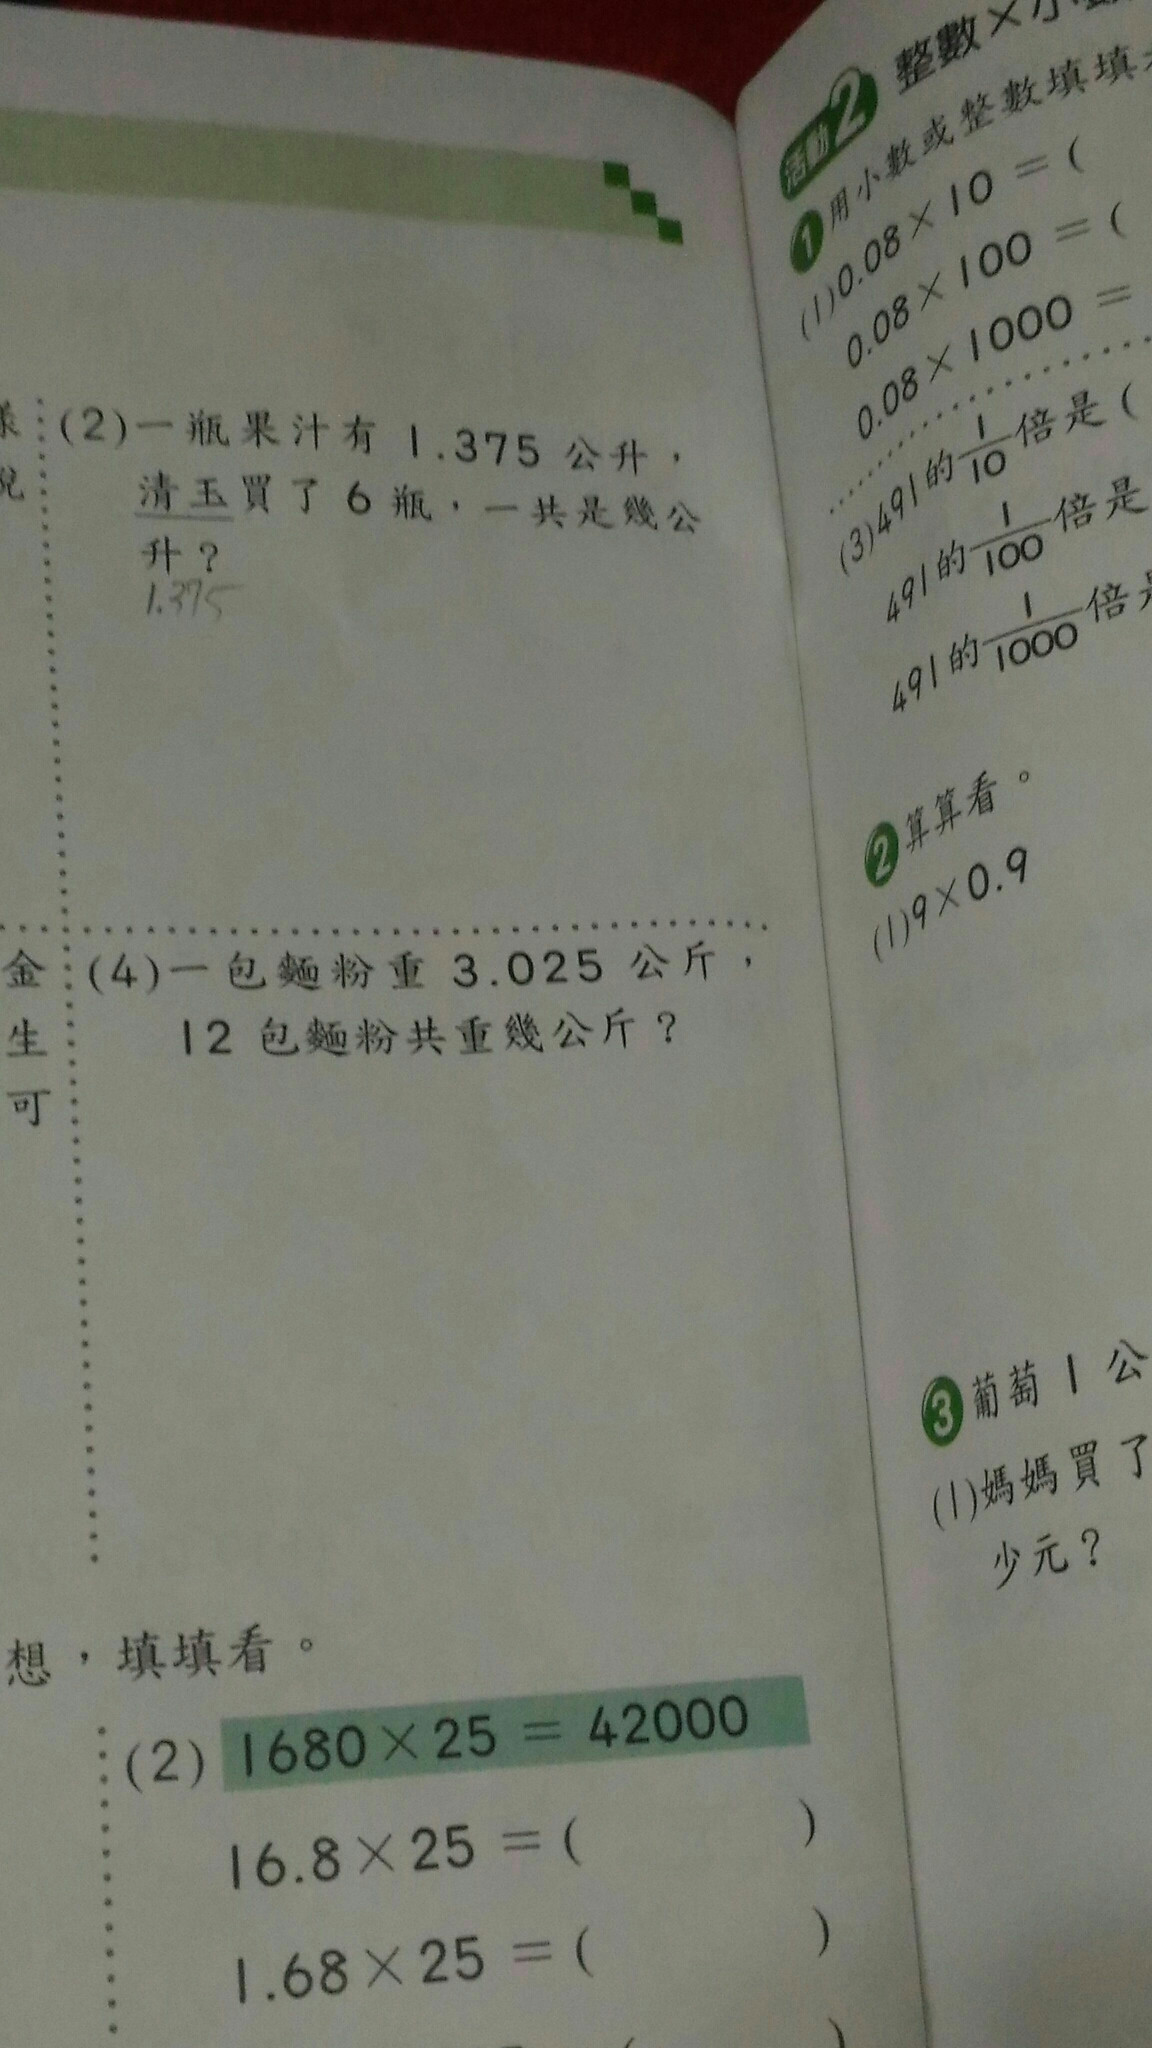 (2)一瓶果汁有 1.375 公升，
清玉買了 6 瓶，一共是幾公
升？
1.375
金
生
可
(4)一包麵粉重 3.025 公斤，
12 包麵粉共重幾公斤？
想，填填看。
(2) 1680×25＝42000
16.8×25＝( )
1.68×25＝( )
活動2 整數×小
❶用小數或整數填填
(1)0.08×10＝(
0.08×100＝(
0.08×1000＝
(3)491的1/10倍是(
491的1/100倍是
491的1/1000倍是
❷算算看。
(1)9×0.9
❸葡萄 1 公
(1)媽媽買了
少元？